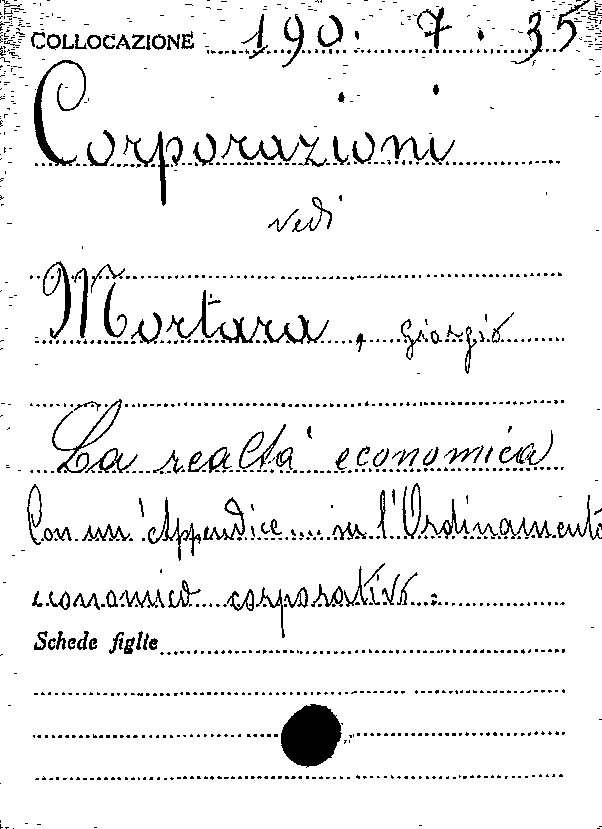 COLLOCAZIONE 190. 7. 35
Corporazioni
vedi
Mortara, Giorgio
La realtà economica
Con un'Appendice.... su l'Ordinamento
economico corporativo.
Schede figlie